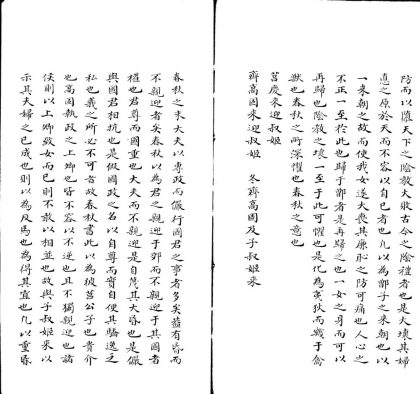 防而以隳天下之陰教大敗古今之陰禮者也是大壊其婦
惠之原於天而不容以自已者也凡以為鄫子之來朝也以
一來朝之故而使我女遂大喪其廉恥之防可痛也人心之
不正一至於此也歸于鄫者是再歸之也一女之身而可以
再歸也陰教之壊一至于此可懼也是化為夷狄而幾于禽
獸也春秋之所深懼也春秋之意也
莒慶來迎叔姬
齊高固來迎叔姬　冬齊高固及子叔姬來
春秋之末大夫以專政而僭行國君之事者多矣蓋有昏而
不親迎者矣春秋以為君之親迎于郊而不親迎于其國者
權也君尊而國重也大夫而不親迎是自蔑其大昏也是僭
與國君相抗也是假國政之名以自尊而實自便其驕逸之
私也義之所必不可者故春秋書此以為彼莒公子也貴介
也高固執政之上卿也皆不容以不逆也且不獨親迎也諸
侯則以上卿致女而已則不敢以相並也故與子叔姬來以
示其夫婦之已成也則以為反馬也為得其宜也凡以重昏